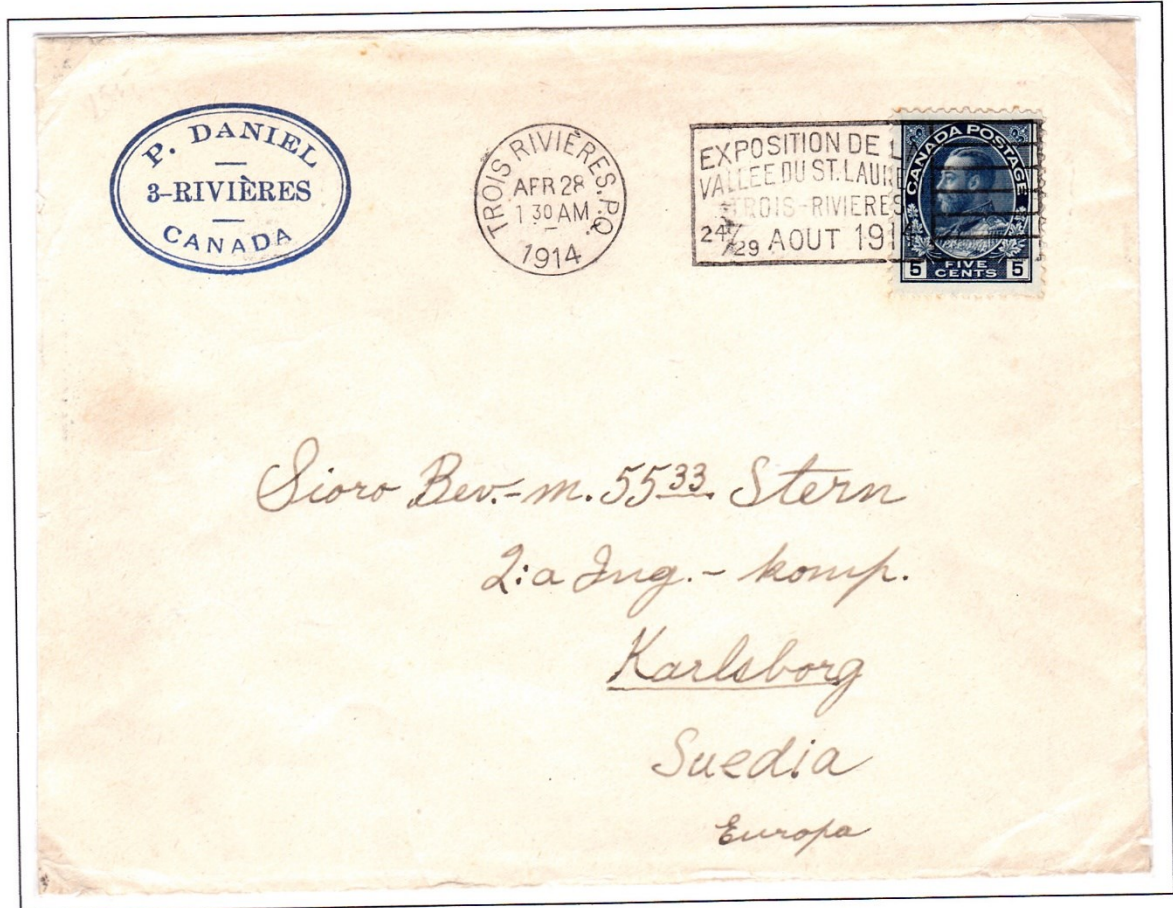 P. DANIEL
3-RIVIÈRES
CANADA
TROIS RIVIÈRES. P.Q.
APR 28
1 30 AM
1914
EXPOSITION DE L
VALLEE DU ST. LAURE
TROIS-RIVIERES
24/29 AOUT 191
CANADA POSTAGE
5 FIVE CENTS 5
Sioro Bev.-m. 5533 Stern
2:a Ing.-komp.
Karlsborg
Suedia
Europa